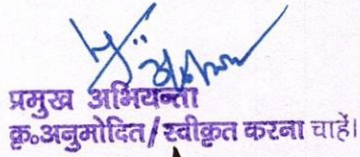 प्रमुख अभियन्ता
कृ०अनुमोदित/स्वीकृत करना चाहें।